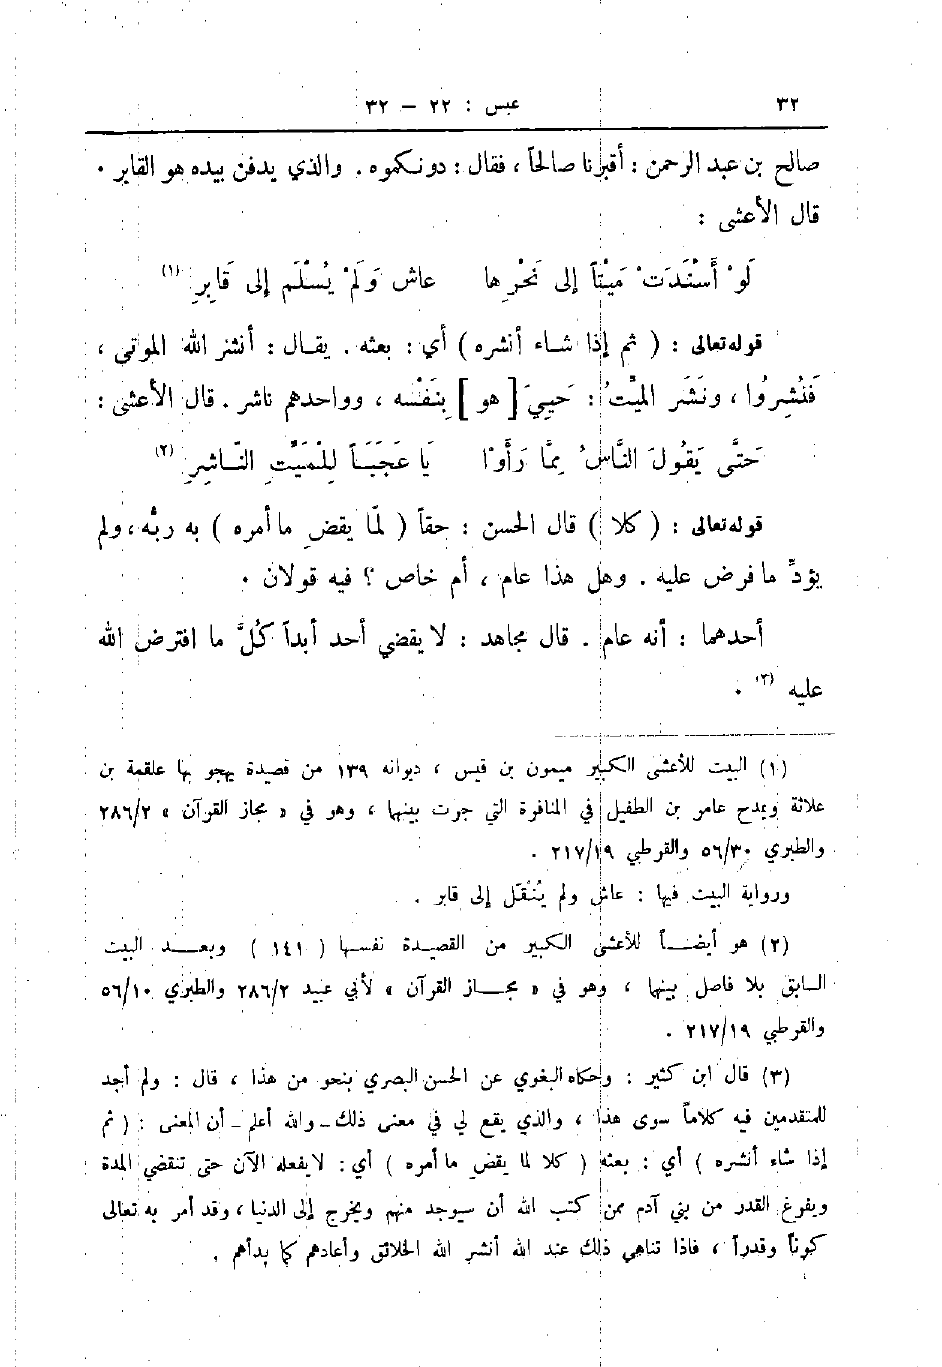 ٣٢ عبس : ٢٢ – ٣٢
صالح بن عبد الرحمن : أقبرنا صالحاً ، فقال : دونكموه . والذي يدفن بيده هو القابر .
قال الأعشى :
لَوْ أَسْنَدَتْ مَيْتاً إلى نَحْرِها عاش وَلَمْ يُسْلَم إلى قَابِرِ (١)
قوله تعالى : ( ثم إذا شاء أنشره ) أي : بعثه . يقال : أنشر الله الموتى ،
فَنُشِرُوا ، ونَشَر الميْتُ : حَيِيَ [ هو ] بِنَفْسه ، وواحدهم ناشر . قال الأعشى :
حَتَّى يَقُولَ النَّاسُ مِمَّا رَأَوْا يَا عَجَبَاً لِلْمَيِّتِ النَّاشِرِ (٢)
قوله تعالى : ( كلا ) قال الحسن : حقاً ( لمّا يقضِ ما أمره ) به ربُّه ، ولم
يؤدِّ ما فرض عليه . وهل هذا عام ، أم خاص ؟ فيه قولان .
أحدهما : أنه عام . قال مجاهد : لا يقضي أحد أبداً كُلَّ ما افترض الله
عليه (٣) .
(١) البيت للأعشى الكبير ميمون بن قيس ، ديوانه ١٣٩ من قصيدة يهجو بها علقمة بن
علاثة ويمدح عامر بن الطفيل في المنافرة التي جرت بينها ، وهو في « مجاز القرآن » ٢٨٦/٢
والطبري ٥٦/٣٠ والقرطبي ٢١٧/١٩ .
ورواية البيت فيها : عاش ولم يُنْقَل إلى قابر .
(٢) هو أيضاً للأعشى الكبير من القصيدة نفسها ( ١٤١ ) وبعد البيت
السابق بلا فاصل بينها ، وهو في « مجاز القرآن » لأبي عبيد ٢٨٦/٢ والطبري ٥٦/١٠
والقرطبي ٢١٧/١٩ .
(٣) قال ابن كثير : وحكاه البغوي عن الحسن البصري بنحو من هذا ، قال : ولم أجد
للمتقدمين فيه كلاماً سوى هذا ، والذي يقع لي في معنى ذلك - والله أعلم - أن المعنى : ( ثم
إذا شاء أنشره ) أي : بعثه ( كلا لما يقضِ ما أمره ) أي : لا يفعله الآن حتى تنقضي المدة
ويفرغ القدر من بني آدم ممن كتب الله أن سيوجد منهم ويخرج إلى الدنيا ، وقد أمر به تعالى
كوناً وقدراً ، فاذا تناهي ذلك عند الله أنشر الله الخلائق وأعادهم كما بدأهم .